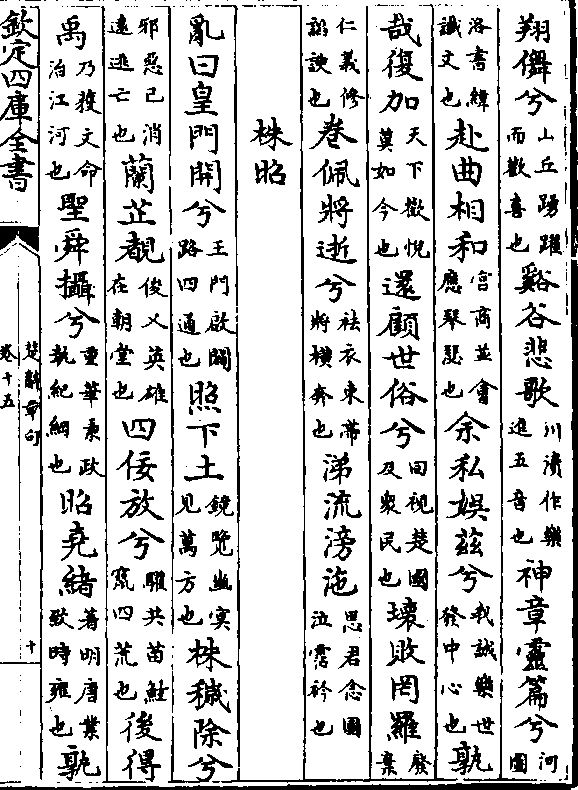 翔儛兮山丘踴躍而歡喜也谿谷悲歌川瀆作樂進五音也神章靈篇兮河圖
洛書緯讖文也赴曲相和宫商並會應琴瑟也余私娯兹兮我誠樂世發中心也孰
哉復加天下歡悅莫如今也還顧世俗兮回視楚國及衆民也壞敗罔羅廢棄
仁義修諂諛也卷佩將逝兮袪衣束帶將橫奔也涕流滂沲思君念國泣霑衿也
株昭
亂曰皇門開兮王門啟闢路四通也照下土鏡覽幽冥見萬方也株穢除兮
邪惡已消遠逃亡也蘭芷覩俊乂英雄在朝堂也四佞放兮驩共苗鮌竄四荒也後得
禹乃獲文命治江河也聖舜攝兮重華秉政執紀綱也昭堯緒著明唐業致時雍也孰
欽定四庫全書
楚辭章句
卷十五
十